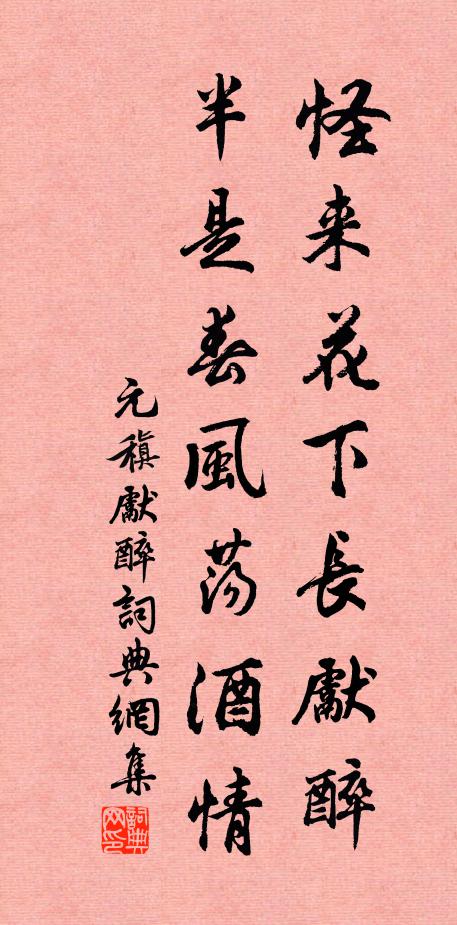 怪来花下長獻醉
半是春風蕩酒情
元稹獻醉詞典網集
詞典网印